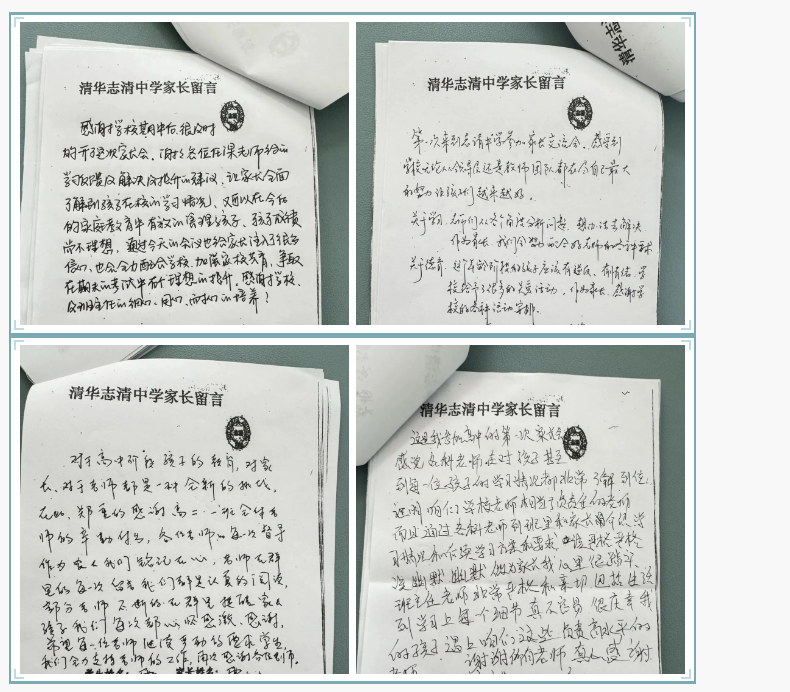 清华志清中学家长留言
感谢学校期中后很及时
的开这次家长会。谢谢各位任课老师给的
学习反馈及解决及提升的建议，让家长全面
了解到孩子在校的学习情况，又可以在今后
的家庭教育中有效的管理孩子，孩子成绩
尚不理想，通过今天的会议也给家长注入了很多
信心，也会全力配合学校，加强家校共育，争取
在期末的考试中有个理想的提升。感谢学校、
及班主任的细心、用心、耐心的培养！
清华志清中学家长留言
第一次来到志清中学参加家长交流会，感受到
学校无论从领导还是教师团队都在尽自己最大
的努力让孩子们越来越好。
关于学习：老师们从各个角度分析问题，想办法去解决
作为家长，我们会努力配合好老师的各种要求
关于德育：这个年龄阶段的孩子应该有担氏、有责任、学
校给予了很多的关爱活动，作为家长，感谢学
校的各种活动安排。
清华志清中学家长留言
对于高中阶段孩子的教育，对家
长、对于老师都是一种全新的挑战。
在此，郑重的感谢高二·一班全体老
师的辛勤付出，各位老师的每次督导
作为家人我们铭记在心，老师在群
里的每次留言我们都是认真的阅读，
部分老师不断的在群里提醒家长
孩子我们每次都心怀感激、感谢。
希望每一位老师继续严格的要求学生，
我们全力支持老师的工作，再次感谢各位老师。
清华志清中学家长留言
这是我参加高中的第一次家长会
感觉各科老师对孩子甚至
到每一位孩子的学习情况都非常了解到位
证明咱们学校老师相当于负责任的老师
而且通过各科老师到班里和家长简介说学
习情况和后续学习方案和要求，严格
没幽默幽默 做为家长我心里很踏实
班主任老师非常严格和亲切 因从生活
到学习上每一个细节真不容易 很庆幸我
的孩子遇上咱们这些负责高水平的
老师 谢谢所有老师 真心感谢